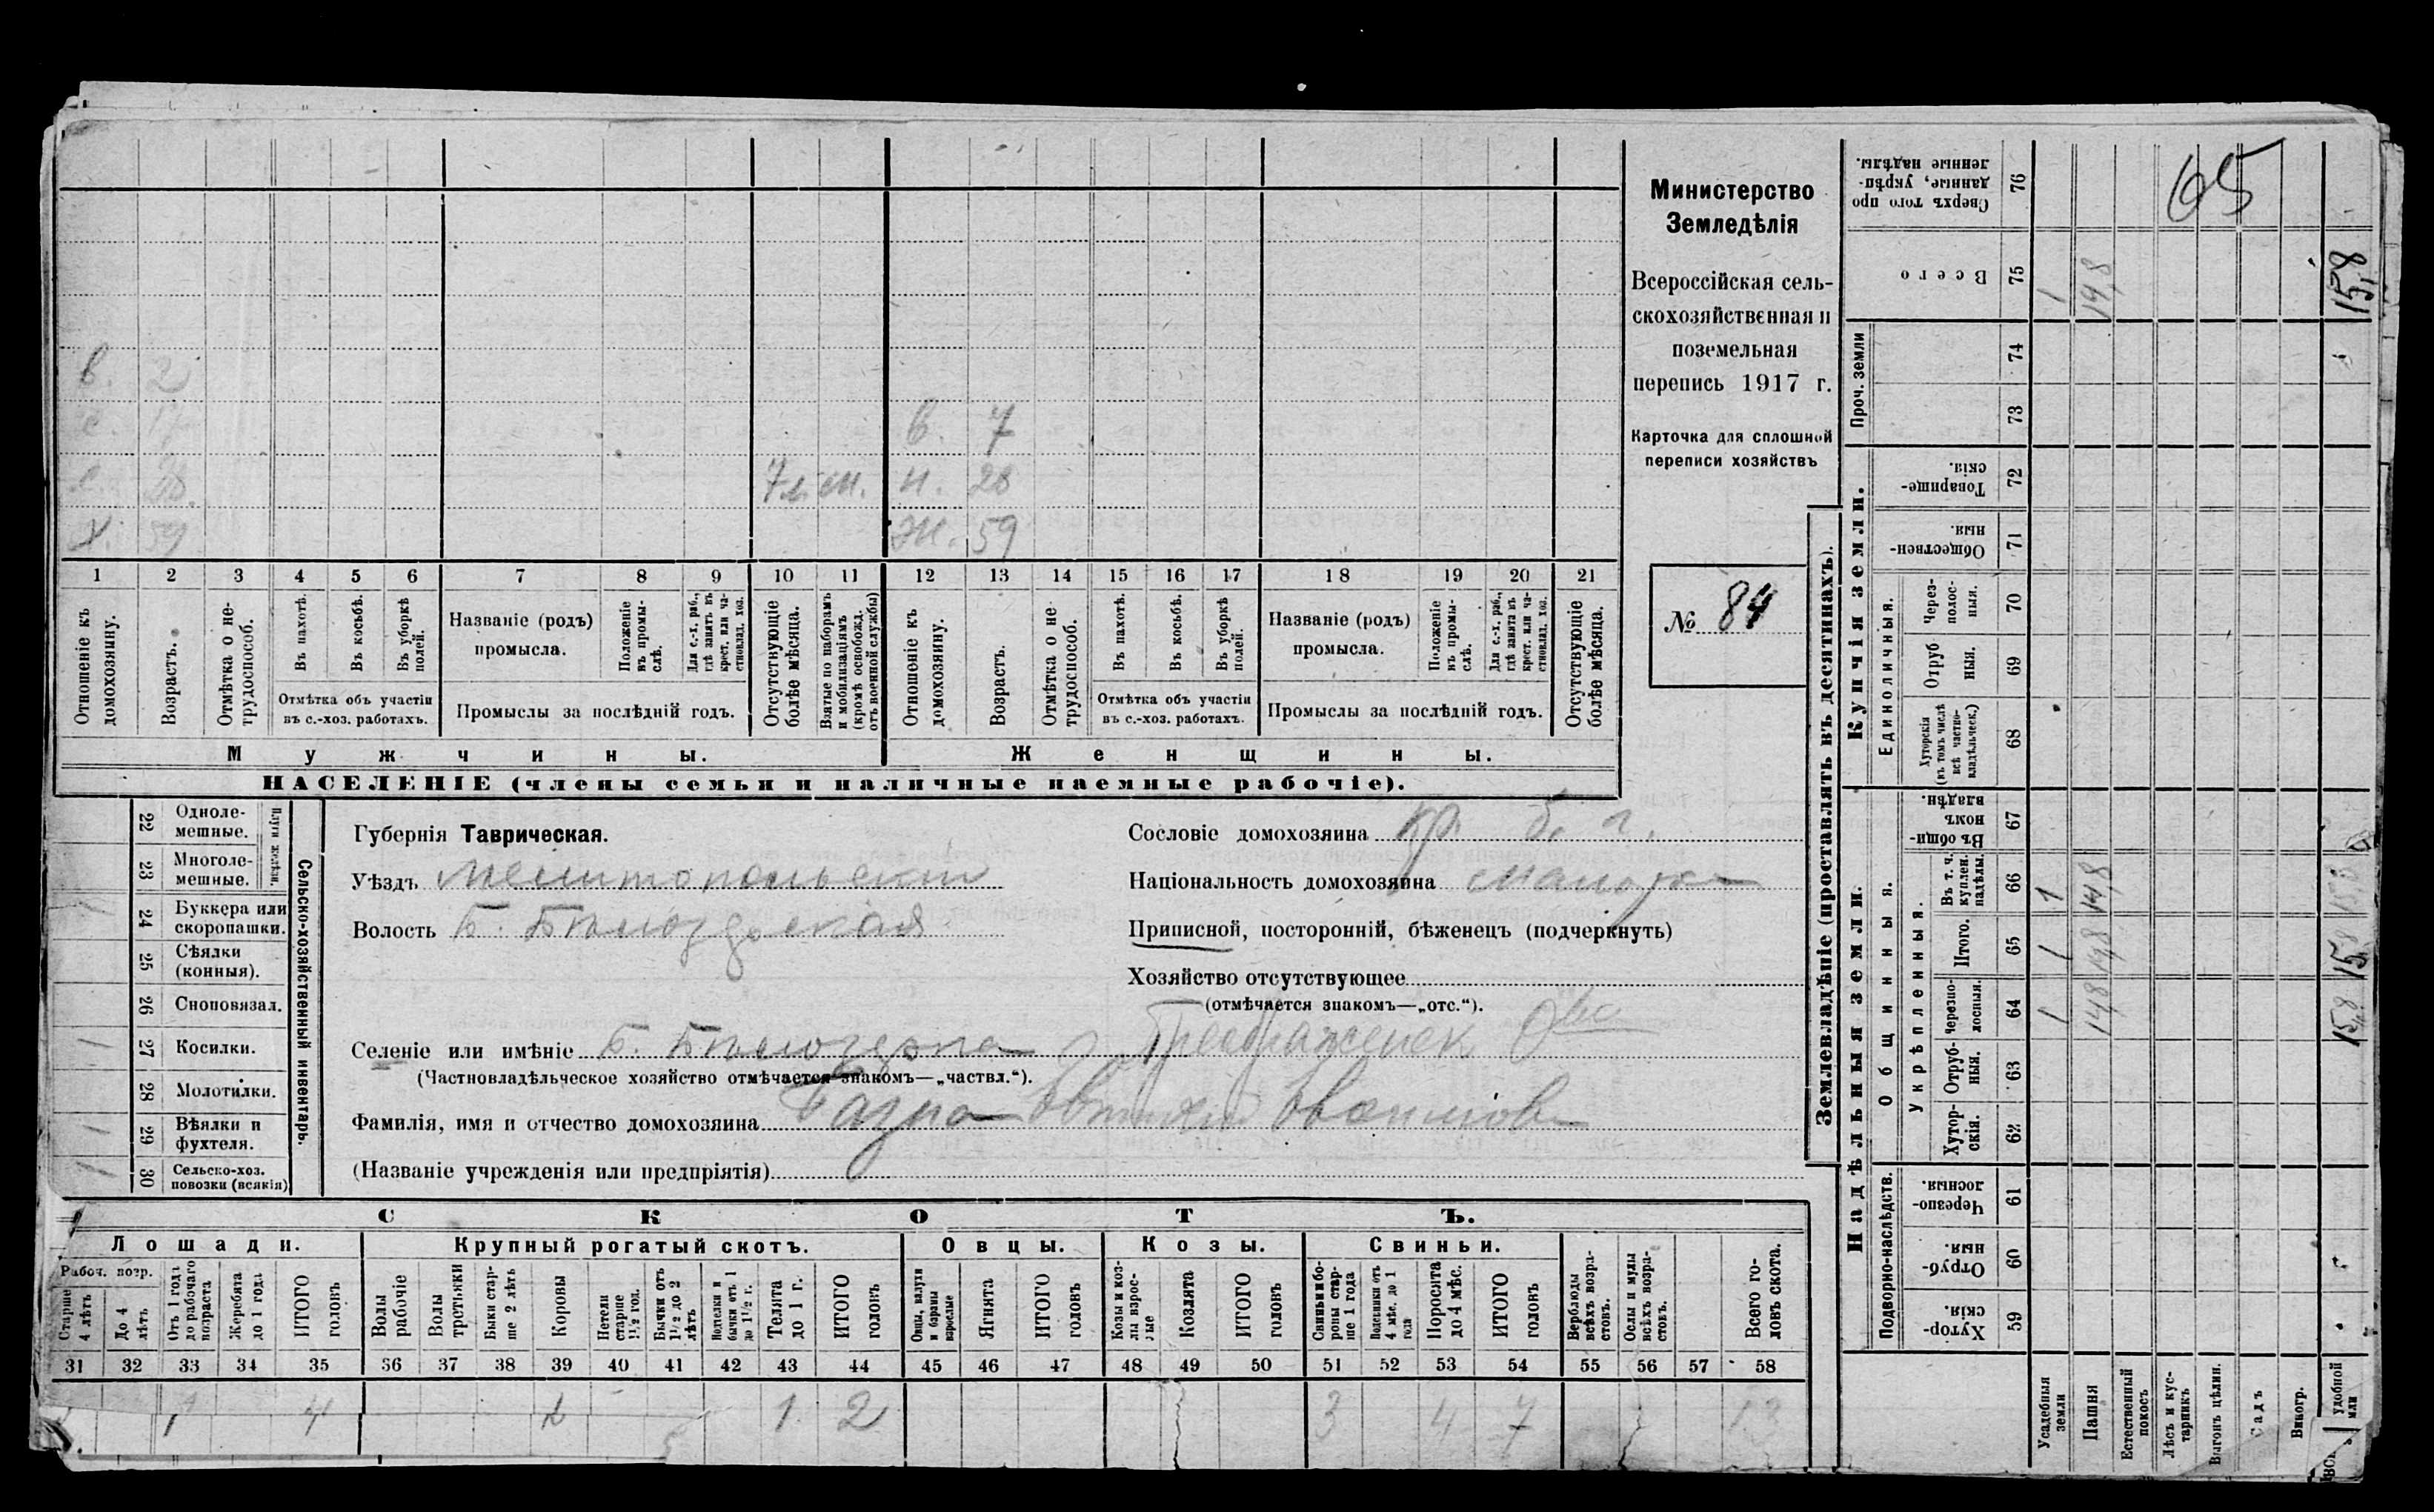 65
Министерство
Земледѣлія
Всероссійская сель-
скохозяйственная и
поземельная
перепись 1917 г.
Карточка для сплошной
переписи хозяйствъ
№ 84
в. 2
с. 17 в. 7
с. 38. н. 28
х. 59 ж. 59
1 2 3 4 5 6 7 8 9 10 11 12 13 14 15 16 17 18 19 20 21
Отношеніе къ домохозяину.
Возрастъ.
Отмѣтка о не-трудоспособ.
Въ пахотѣ.
Въ косьбѣ.
Въ уборкѣ полей.
Отмѣтка объ участіи
въ с.-хоз. работахъ.
Названіе (родъ)
промысла.
Положеніе въ промы-слѣ.
Для с.-х. раб., гдѣ занятъ въ крест. или ча-стновлад. хоз.
Промыслы за послѣдній годъ.
Отсутствующіе болѣе мѣсяца.
Взятые по наборамъ и мобилизаціямъ (кромѣ освобожд. отъ военной службы)
Отношеніе къ домохозяину.
Возрастъ.
Отмѣтка о не-трудоспособ.
Въ пахотѣ.
Въ косьбѣ.
Въ уборкѣ полей.
Отмѣтка объ участіи
въ с.-хоз. работахъ.
Названіе (родъ)
промысла.
Положеніе въ промы-слѣ.
Для с.-х. раб., гдѣ занята въ крест. или ча-стновлад. хоз.
Промыслы за послѣдній годъ.
Отсутствующіе болѣе мѣсяца.
Мужчины.
Женщины.
НАСЕЛЕНІЕ (члены семьи и наличные наемные рабочіе).
Сельско-хозяйственный инвентарь.
Плуги желѣзн.
22 Одноле-
мешные.
23 Многоле-
мешные.
24 Буккера или
скоропашки.
25 Сѣялки
(конныя).
26 Сноповязал.
27 Косилки.
28 Молотилки.
29 Вѣялки и
фухтеля.
30 Сельско-хоз.
повозки (всякія)
Губернія Таврическая.
Уѣздъ Мелитопольскій
Волость Б. Бѣлозерская
Селеніе или имѣніе Б. Бѣлозерка Преображенск
(Частновладѣльческое хозяйство отмѣчается знакомъ—„частвл.“).
Фамилія, имя и отчество домохозяина
(Названіе учрежденія или предпріятія)
Сословіе домохозяина кр. б. г.
Національность домохозяина малорос
Приписной, посторонній, бѣженецъ (подчеркнуть)
Хозяйство отсутствующее
(отмѣчается знакомъ—„отс.“).
СКОТЪ.
Лошади.
Крупный рогатый скотъ.
Овцы.
Козы.
Свиньи.
Рабоч. возр.
Старше 4 лѣтъ
До 4 лѣтъ
Отъ 1 года до рабочаго возраста
Жеребята до 1 года
ИТОГО головъ
Волы рабочіе
Волы третьяки
Быки стар-ше 2 лѣтъ
Коровы
Нетели старше 1½ год.
Бычки отъ 1½ до 2 лѣтъ
Подтелки и бычки отъ 1 до 1½ г.
Телята до 1 г.
ИТОГО головъ
Овцы, валухи и бараны взрослые
Ягнята
ИТОГО головъ
Козы и коз-лы взрос-лые
Козлята
ИТОГО головъ
Свиньи и бо-ровы стар-ше 1 года
Подсвинки отъ 4 мѣс. до 1 года
Поросята до 4 мѣс.
ИТОГО головъ
Верблюды всѣхъ возра-стовъ.
Ослы и мулы всѣхъ возра-стовъ.
Всего го-ловъ скота.
31 32 33 34 35 36 37 38 39 40 41 42 43 44 45 46 47 48 49 50 51 52 53 54 55 56 57 58
1 4 1 2 3 4 7 13
Землевладѣніе (проставлять въ десятинахъ).
Купчія земли.
Надѣльныя земли.
Проч. земли
Единоличныя.
Общинныя.
Укрѣпленныя.
Подворно-наслѣдств.
76 Сверхъ того про
данные, укрѣп-
ленные надѣлы.
75 Всего 1 14,8 15,8
74
73
72 Товарище-
скія.
71 Обществен-
ныя.
70 Через-
полос-
ныя.
69 Отруб
ныя.
68 Хуторскія
(въ томъ числѣ
всѣ частно-
владѣльческ.)
67 Въ общи-
номъ
владѣн.
66 Въ т. ч.
куплен.
надѣлы. 1 14,8 15,8
65 Итого. 1 14,8 15,8
64 Черезпо-
лосныя. 1 14,8 15,8
63 Отруб-
ныя.
62 Хутор-
скія.
61 Черезпо-
лосныя.
60 Отруб-
ныя.
59 Хутор-
скія.
Усадебныя
земли
Пашня
Естественный
покосъ
Лѣсъ и кус-
тарникъ
Выгонъ цѣлин.
Садъ
Виногр.
удобной